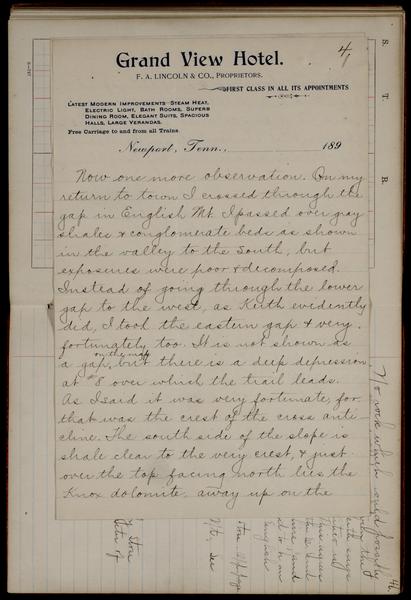 4/
Grand View Hotel.
F. A. LINCOLN & CO., PROPRIETORS.
FIRST CLASS IN ALL ITS APPOINTMENTS
LATEST MODERN IMPROVEMENTS—STEAM HEAT,
ELECTRIC LIGHT, BATH ROOMS, SUPERB
DINING ROOM, ELEGANT SUITS, SPACIOUS
HALLS, LARGE VERANDAS.
Free Carriage to and from all Trains.
Newport, Tenn., 189
Now one more observation. On my
return to town I crossed through the
gap in English Mt. I passed over gray
shales & conglomerate beds as shown
in the valley to the south, but
exposures were poor & decomposed.
Instead of going through the lower
gap to the west, as Keith evidently
did, I took the eastern gap & very
fortunately too. It is not shown as
a gap, on the map but there is a deep depression
at #8 over which the trail leads.
As I said it was very fortunate, for
that was the crest of the cross anti-
cline. The south side of the slope is
shale clear to the very crest, & just
over the top facing north lies the
Knox dolomite, away up on the
S. T. R.
No work which could possibly